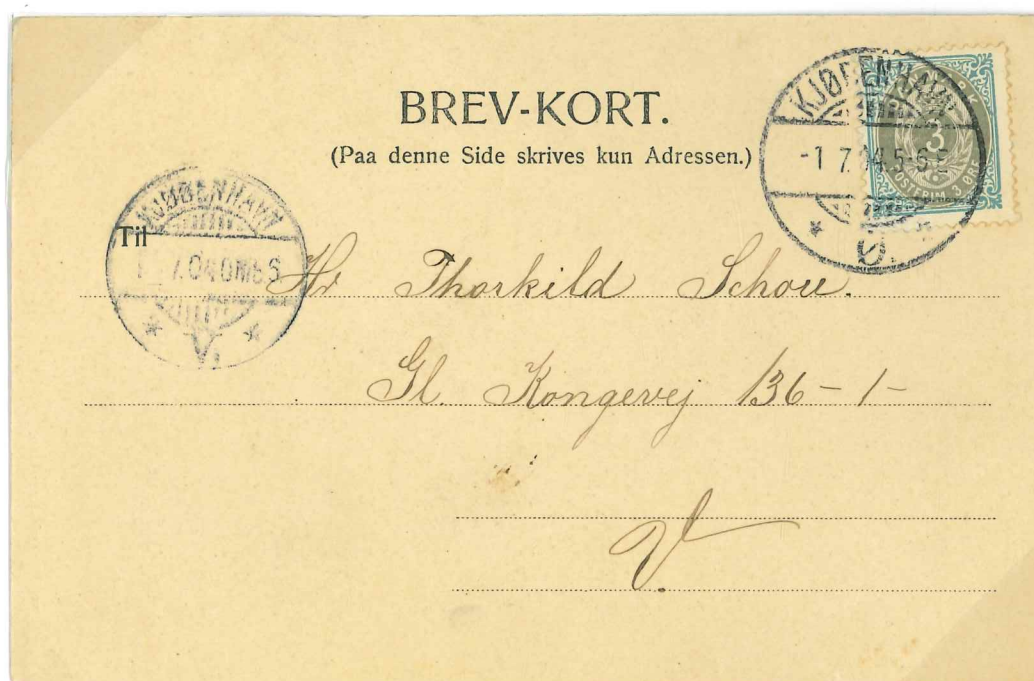 BREV-KORT.
(Paa denne Side skrives kun Adressen.)
KJØBENHAVN
-1 7.04.5-6E
Ø.
3
POSTFRIM. 3 ØRE
KJØBENHAVN
7.04 OMB6
V.
Til
Hr Thorkild Schou.
Gl. Kongevej 136-1-
V.